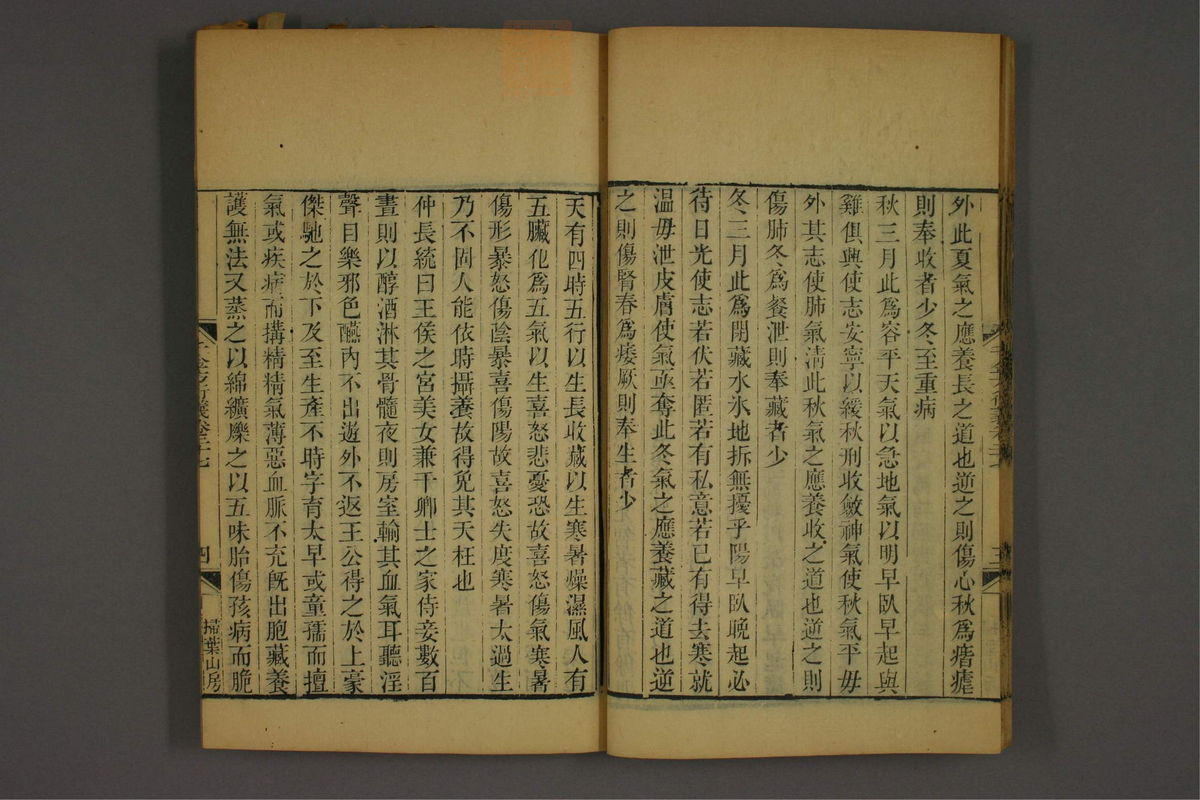 外此夏氣之應養長之道也逆之則傷心秋爲痎瘧
則奉收者少冬至重病
秋三月此爲容平天氣以急地氣以明早臥早起與
雞俱興使志安寧以緩秋刑收斂神氣使秋氣平毋
外其志使肺氣清此秋氣之應養收之道也逆之則
傷肺冬爲飧泄則奉藏者少
冬三月此爲閉藏水氷地拆無擾乎陽早臥晚起必
待日光使志若伏若匿若有私意若已有得去寒就
温毋泄皮膚使氣亟奪此冬氣之應養藏之道也逆
之則傷腎春爲痿厥則奉生者少
三
天有四時五行以生長收藏以生寒暑燥濕風人有
五臟化爲五氣以生喜怒悲憂恐故喜怒傷氣寒暑
傷形暴怒傷陰暴喜傷陽故喜怒失度寒暑太過生
乃不固人能依時攝養故得免其夭枉也
仲長統曰王侯之宮美女兼千卿士之家侍妾數百
晝則以醇酒淋其骨髓夜則房室輸其血氣耳聽淫
聲目樂邪色醼內不出遊外不返王公得之於上豪
傑馳之於下及至生產不時字育太早或童孺而擅
氣或疾病而搆精精氣薄惡血脈不充旣出胞藏養
護無法又蒸之以綿纊爍之以五味胎傷孩病而脆
千金方衍義卷二十七
四
掃葉山房